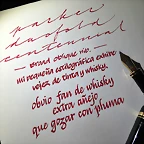 parker
duofold
centennial
broad oblique nib.
mi pequeña estilográfica exhibe
vejez de tinta y whisky.
obvio fan de whisky
extra añejo
que gozar con pluma